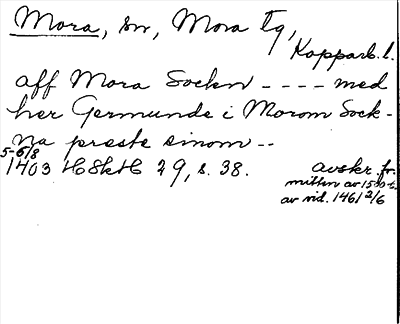 Mora, sn, Mora tg,
Kopparb. l.
aff Mora Sockn ---- med
her Germunde i Morom Sock-
na preste sinom --
5-6/8
1403 HSkH 29, s. 38.
avskr. fr.
mitten av 1500-t.
av vid. 1461 2/6